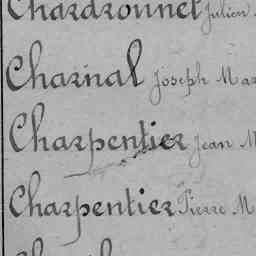 Chardronnet Julien
Charnal Joseph Mar
Charpentier Jean M
Charpentier Pierre M